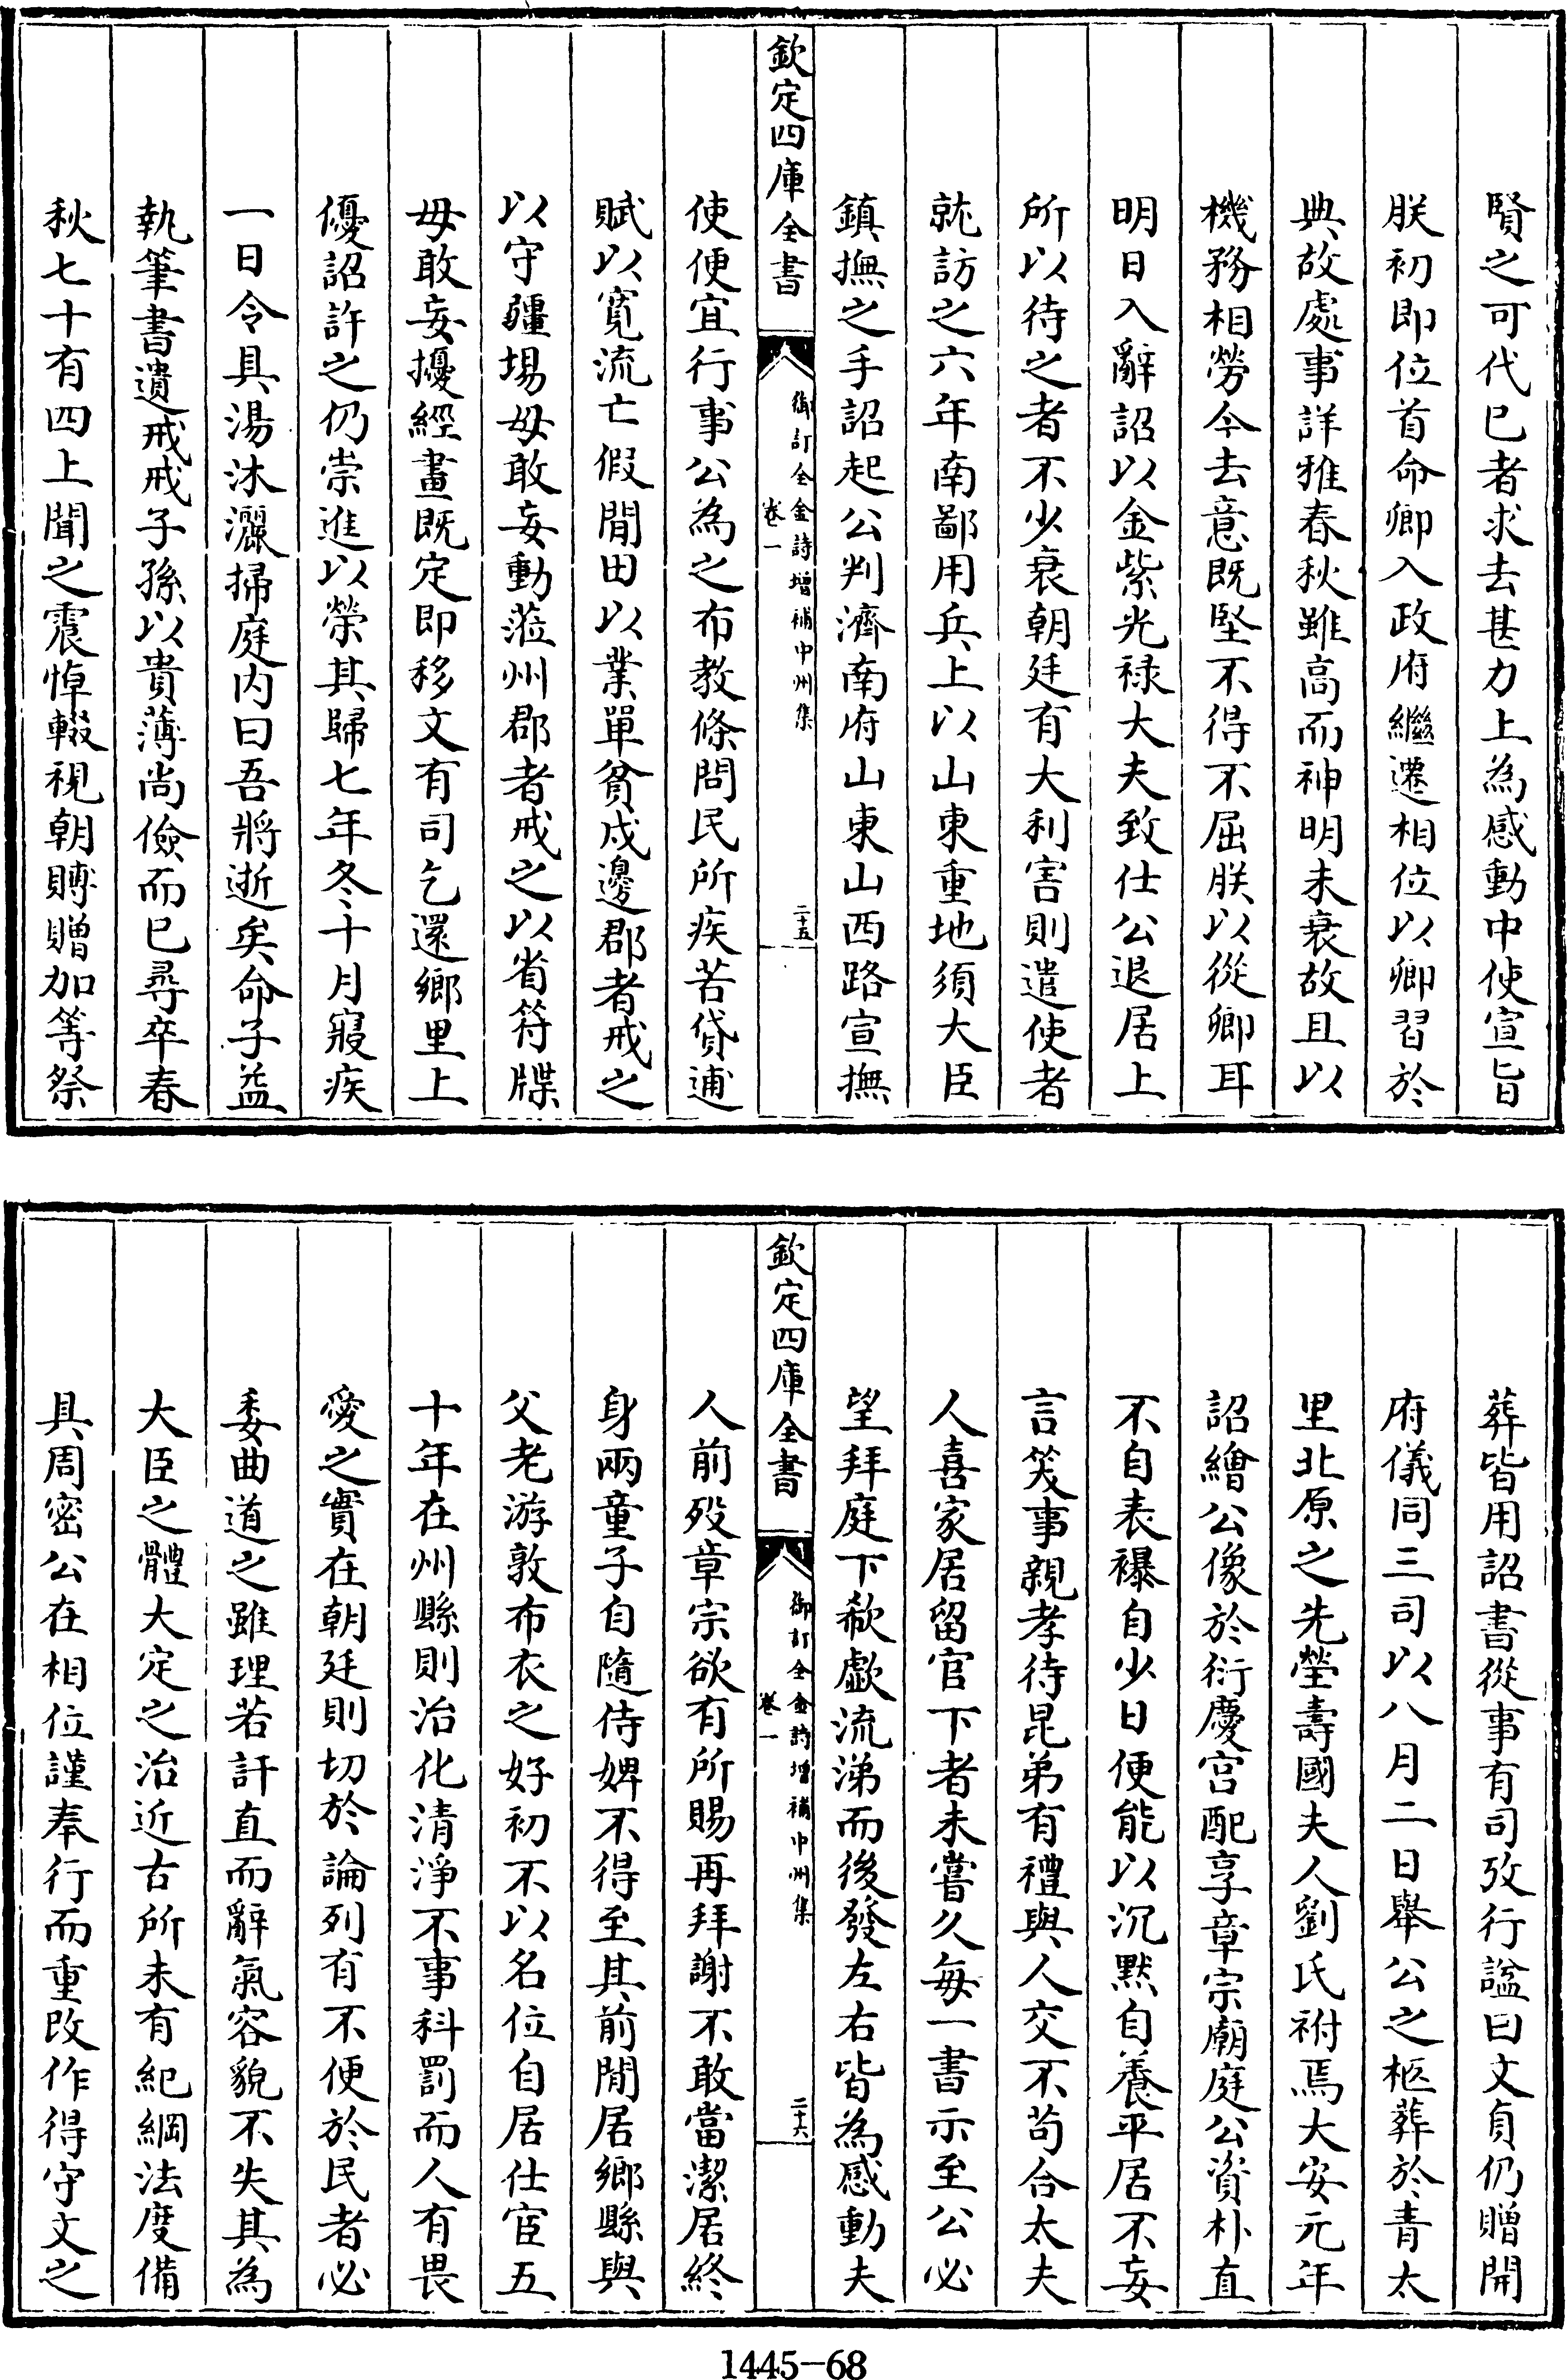 賢之可代已者求去甚力上為感動中使宣旨
朕初即位首命卿入政府繼遷相位以卿習於
典故處事詳雅春秋雖高而神明未衰故且以
機務相勞今去意既堅不得不屈朕以從卿耳
明日入辭詔以金紫光祿大夫致仕公退居上
所以待之者不少衰朝廷有大利害則遣使者
就訪之六年南鄙用兵上以山東重地須大臣
鎮撫之手詔起公判濟南府山東山西路宣撫
欽定四庫全書
御訂全金詩增補中州集
卷一
二十五
使便宜行事公為之布教條問民所疾苦貸逋
賦以寬流亡假閒田以業單貧戍邊郡者戒之
以守疆埸毋敢妄動蒞州郡者戒之以省符牒
毋敢妄擾經畫既定即移文有司乞還鄉里上
優詔許之仍崇進以榮其歸七年冬十月寢疾
一日令具湯沐灑掃庭内曰吾將逝矣命子益
執筆書遺戒戒子孫以貴薄尚儉而已尋卒春
秋七十有四上聞之震悼輟視朝賻贈加等祭
葬皆用詔書從事有司攷行諡曰文貞仍贈開
府儀同三司以八月二日舉公之柩葬於青太
里北原之先塋壽國夫人劉氏祔焉大安元年
詔繪公像於衍慶宮配享章宗廟庭公資朴直
不自表襮自少日便能以沉默自養平居不妄
言笑事親孝待昆弟有禮與人交不苟合太夫
人喜家居留官下者未嘗久每一書示至公必
望拜庭下欷歔流涕而後發左右皆為感動夫
欽定四庫全書
御訂全金詩增補中州集
卷一
二十六
人前歿章宗欲有所賜再拜謝不敢當潔居終
身兩童子自隨侍婢不得至其前閒居鄉縣與
父老游敦布衣之好初不以名位自居仕宦五
十年在州縣則治化清淨不事科罰而人有畏
愛之實在朝廷則切於論列有不便於民者必
委曲道之雖理若訐直而辭氣容貌不失其為
大臣之體大定之治近古所未有紀綱法度備
具周密公在相位謹奉行而重改作得守文之
1445-68